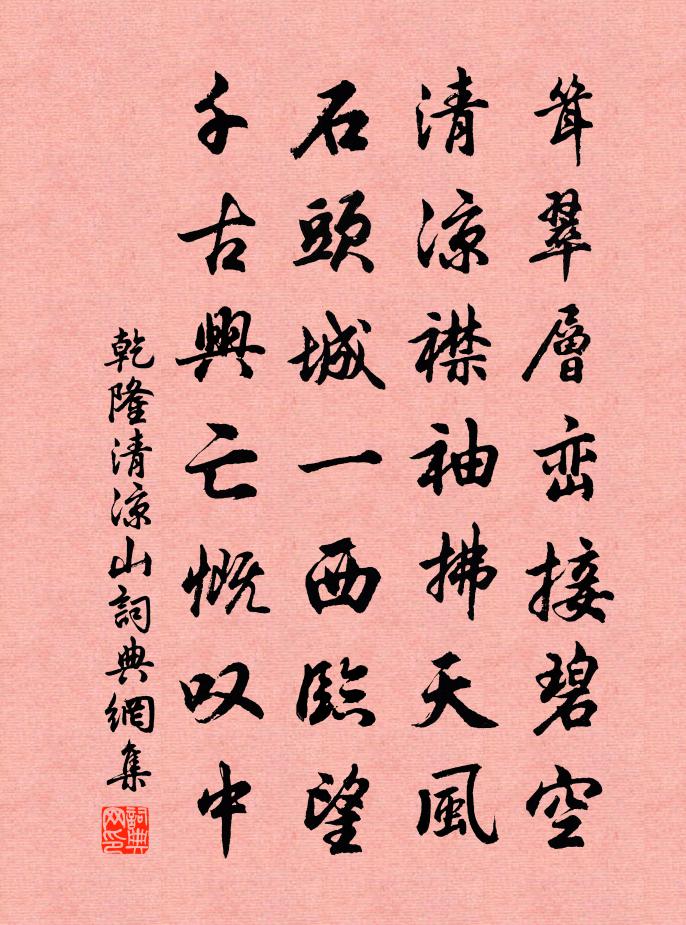 耸翠層峦接碧空
清涼襟袖拂天風
石頭城一西臨望
千古興亡慨叹中
乾隆清涼山詞典網集
詞典网印